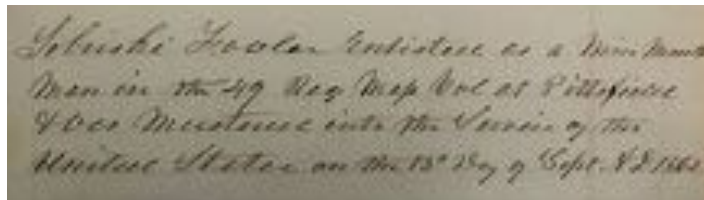 Fowler Enlisted as a Nine Month
Man in the 49 Reg Mass Vol at Pittsfield
& was Mustered into the Service of the
United States on the 18th Day of Sept. A D 1862